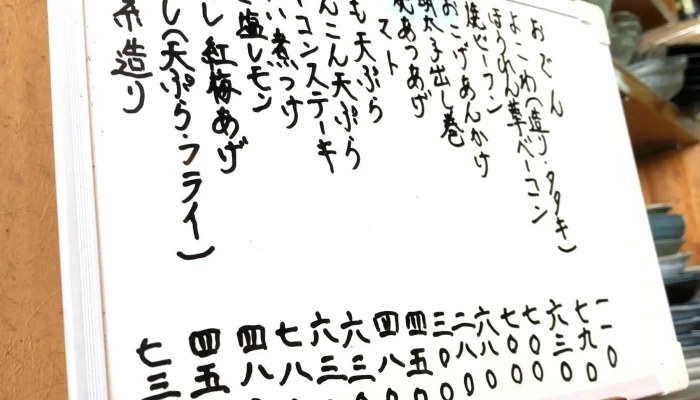 おでん 一一〇
よこわ(造り・タタキ) 七九〇
ほうれん草ベーコン 六三〇
焼ビーフン 七〇〇
おこげあんかけ 七〇〇
明太子出し巻 六八〇
焼あつあげ 二八〇
マト 三〇〇
も天ぷら 四五〇
んこん天ぷら 四八
コンステーキ 六三
い煮つけ 六三
塩レモン 七八
し紅梅あげ 四八
し(天ぷら・フライ) 四五
糸造り 七三